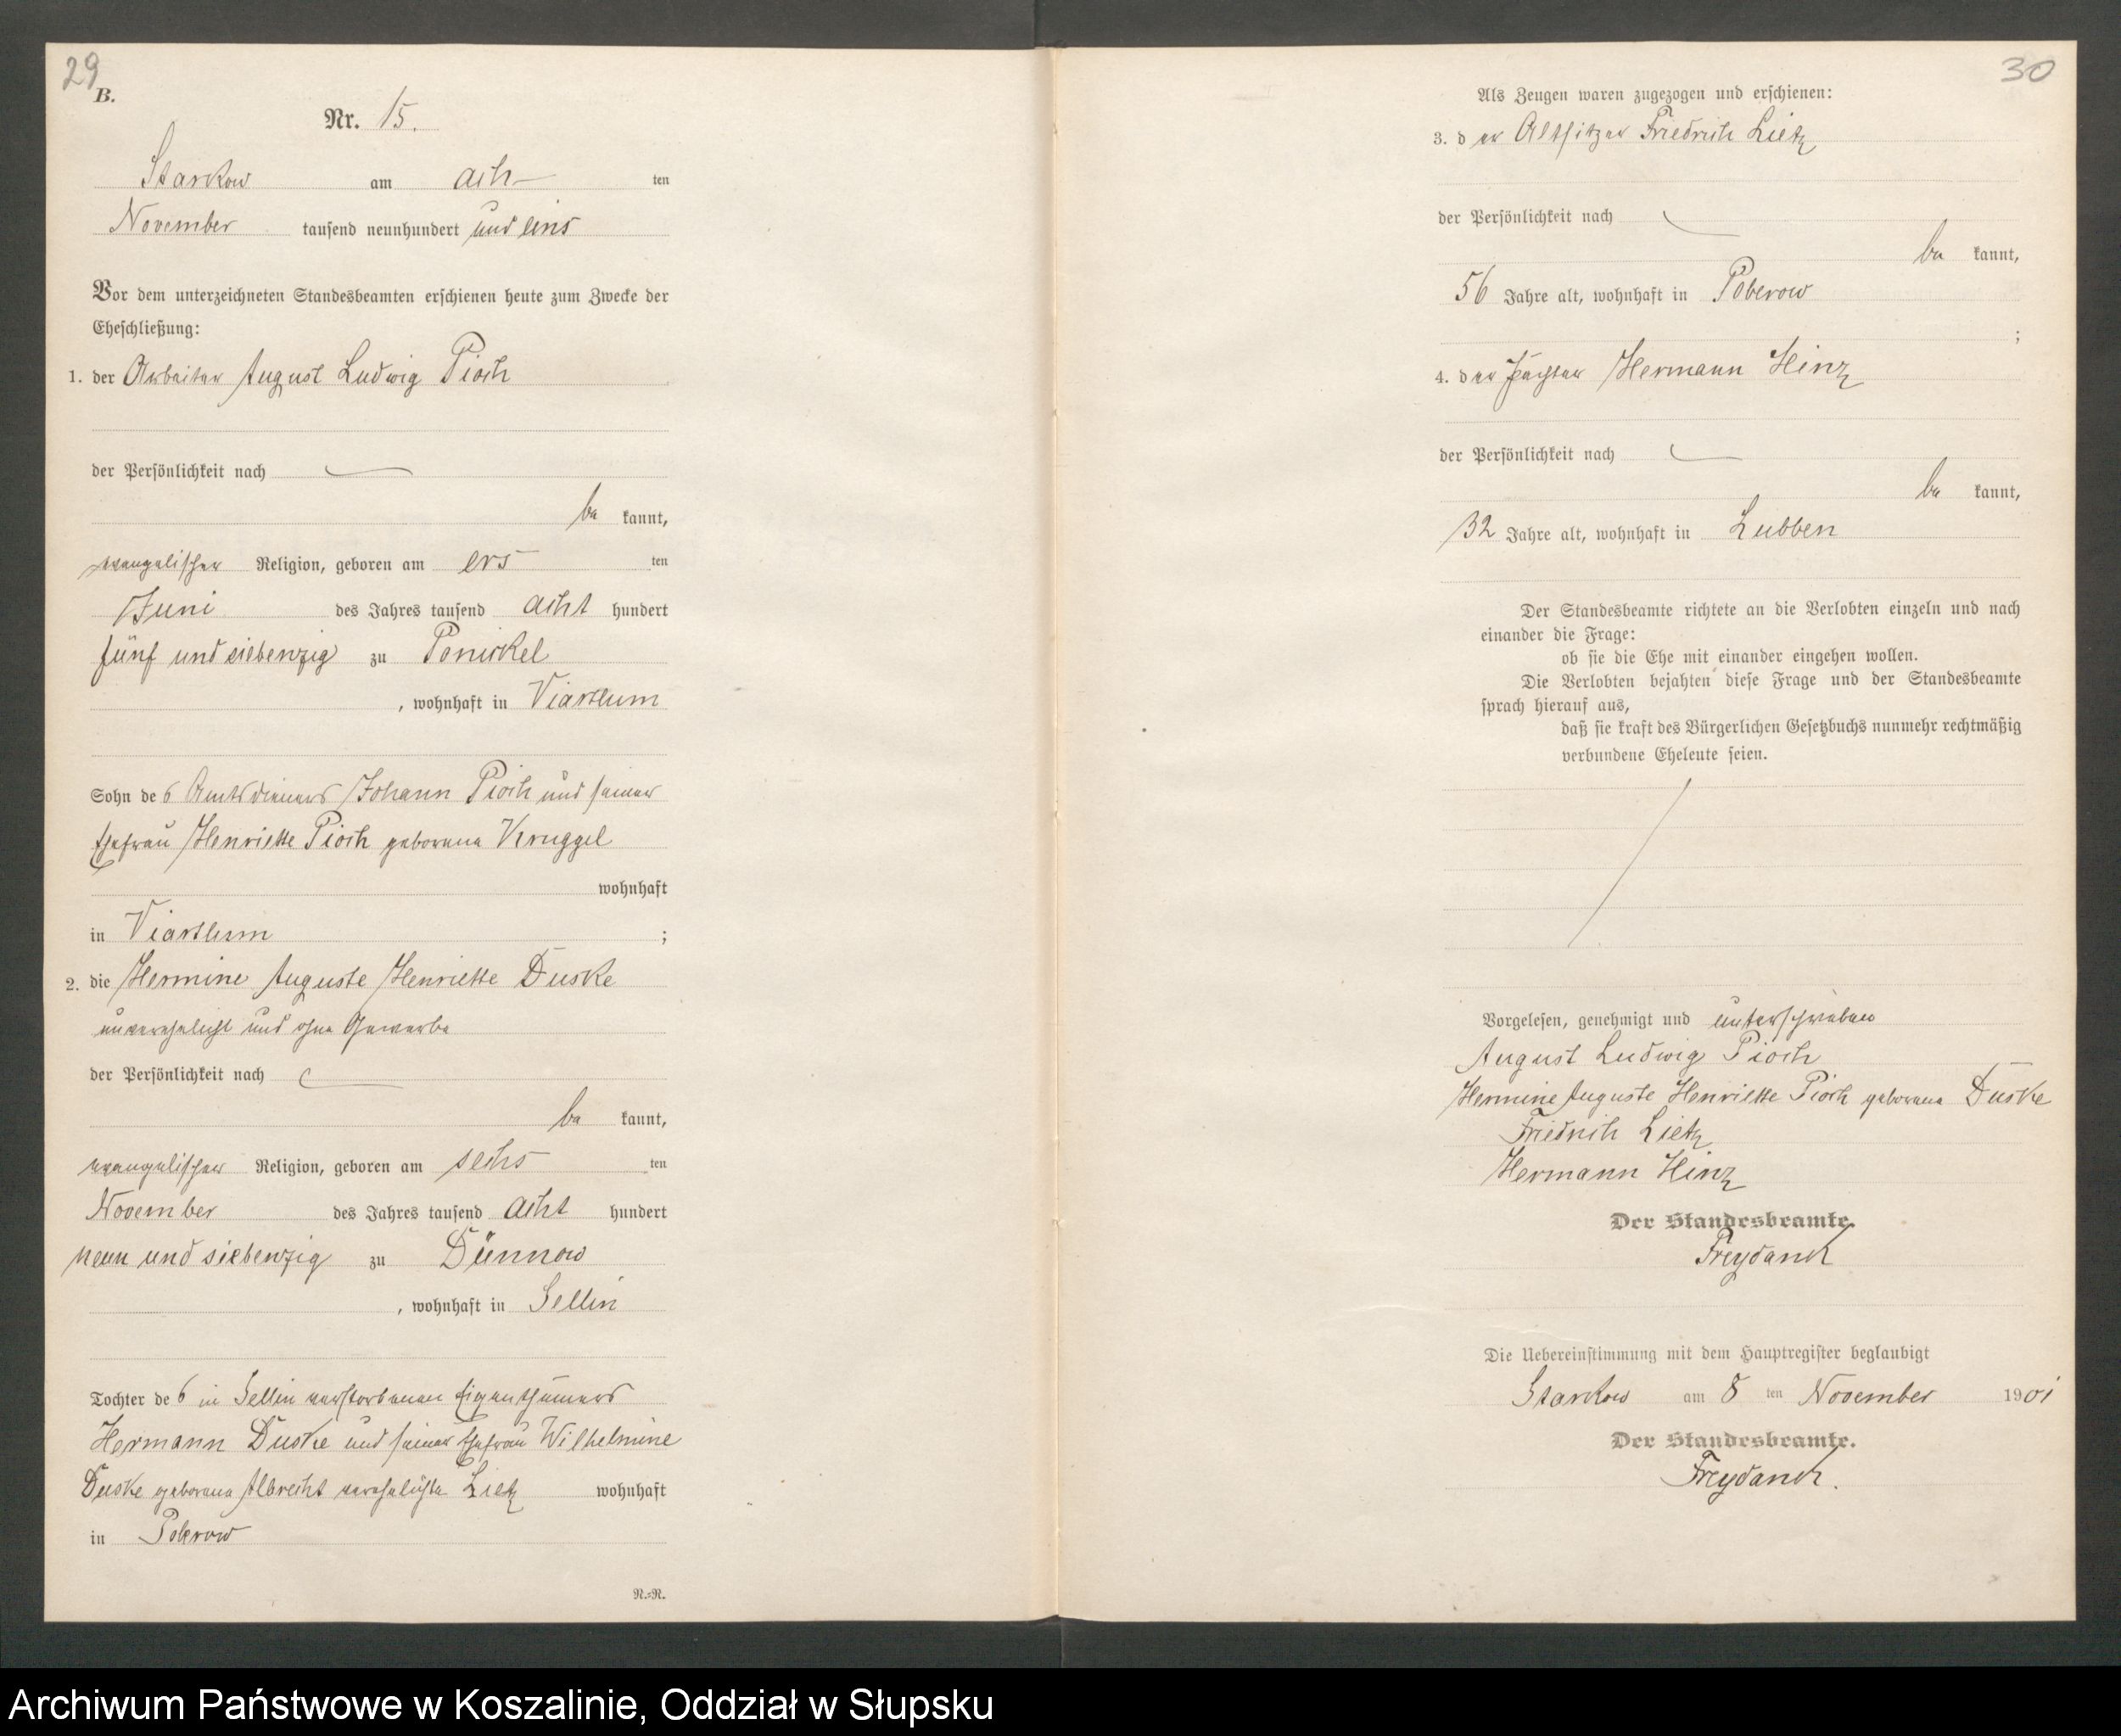 29
B.
Nr. 15.
Starkow am ach- ten
November tausend neunhundert und eins
Vor dem unterzeichneten Standesbeamten erschienen heute zum Zwecke der
Eheschließung:
1. der Arbeiter August Ludwig Pioch
der Persönlichkeit nach
be kannt,
evangelischer Religion, geboren am ers ten
Juni des Jahres tausend acht hundert
fünf und siebenzig zu Ponickel
, wohnhaft in Viartlum
Sohn des Amtsdieners Johann Pioch und seiner
Ehefrau Henriette Pioch geborene Kruggel
wohnhaft
in Viartlum ;
2. die Hermine Auguste Henriette Duske
unverehelicht und ohne Gewerbe
der Persönlichkeit nach
be kannt,
evangelischer Religion, geboren am sechs ten
November des Jahres tausend acht hundert
neun und siebenzig zu Dünnow
, wohnhaft in Sellin
Tochter des in Sellin verstorbenen Eigenthümers
Hermann Duske und seiner Ehefrau Wilhelmine
Duske geborene Albrecht verehelichte Lietz wohnhaft
in Poberow
N.-N.
30
Als Zeugen waren zugezogen und erschienen:
3. der Altsitzer Friedrich Lietz
der Persönlichkeit nach
be kannt,
56 Jahre alt, wohnhaft in Poberow
;
4. der Pächter Hermann Hinz
der Persönlichkeit nach
be kannt,
32 Jahre alt, wohnhaft in Lubben
Der Standesbeamte richtete an die Verlobten einzeln und nach
einander die Frage:
ob sie die Ehe mit einander eingehen wollen.
Die Verlobten bejahten diese Frage und der Standesbeamte
sprach hierauf aus,
daß sie kraft des Bürgerlichen Gesetzbuchs nunmehr rechtmäßig
verbundene Eheleute seien.
Vorgelesen, genehmigt und unterschrieben
August Ludwig Pioch
Hermine Auguste Henriette Pioch geborene Duske
Friedrich Lietz
Hermann Hinz
Der Standesbeamte.
Freydanck
Die Uebereinstimmung mit dem Hauptregister beglaubigt
Starkow am 8 ten November 1901
Der Standesbeamte.
Freydanck.
Archiwum Państwowe w Koszalinie, Oddział w Słupsku